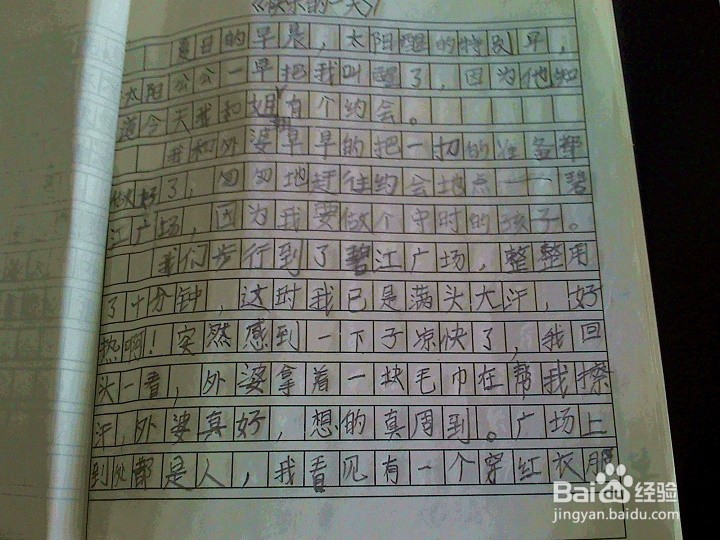 《快乐的一天》
夏日的早晨，太阳醒的特别早，
太阳公公一早把我叫醒了，因为他知
道今天我和姐姐有个约会。
我和外婆早早的把一切的准备都
做好了，匆匆地赶往约会地点——碧
江广场，因为我要做个守时的孩子。
我们步行到了碧江广场，整整用
了十分钟，这时我已是满头大汗，好
热啊！突然感到一下子凉快了，我回
头一看，外婆拿着一块毛巾在帮我擦
汗，外婆真好，想的真周到。广场上
到处都是人，我看见有一个穿红衣服
Baidu经验
jingyan.baidu.com